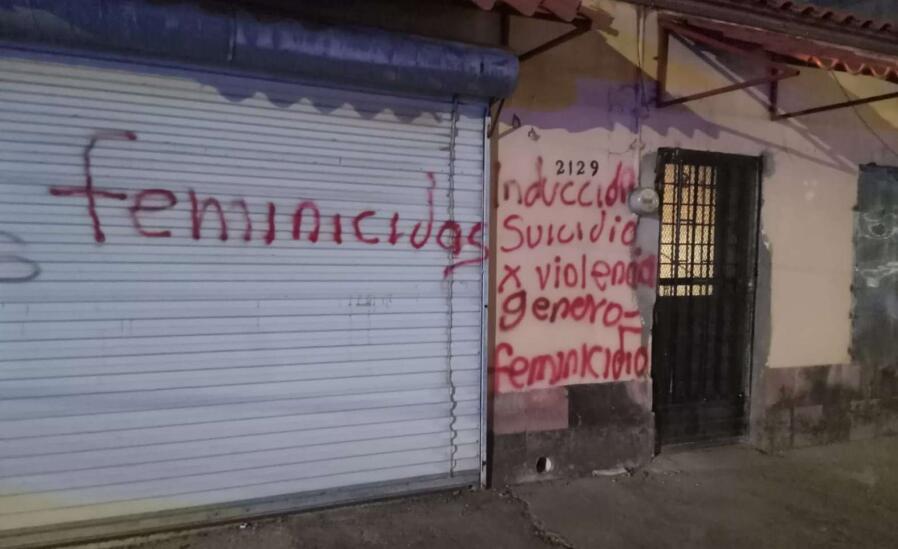 feminicidas
2129
Inducción
Suicidio
x violencia
genero=
feminicidio